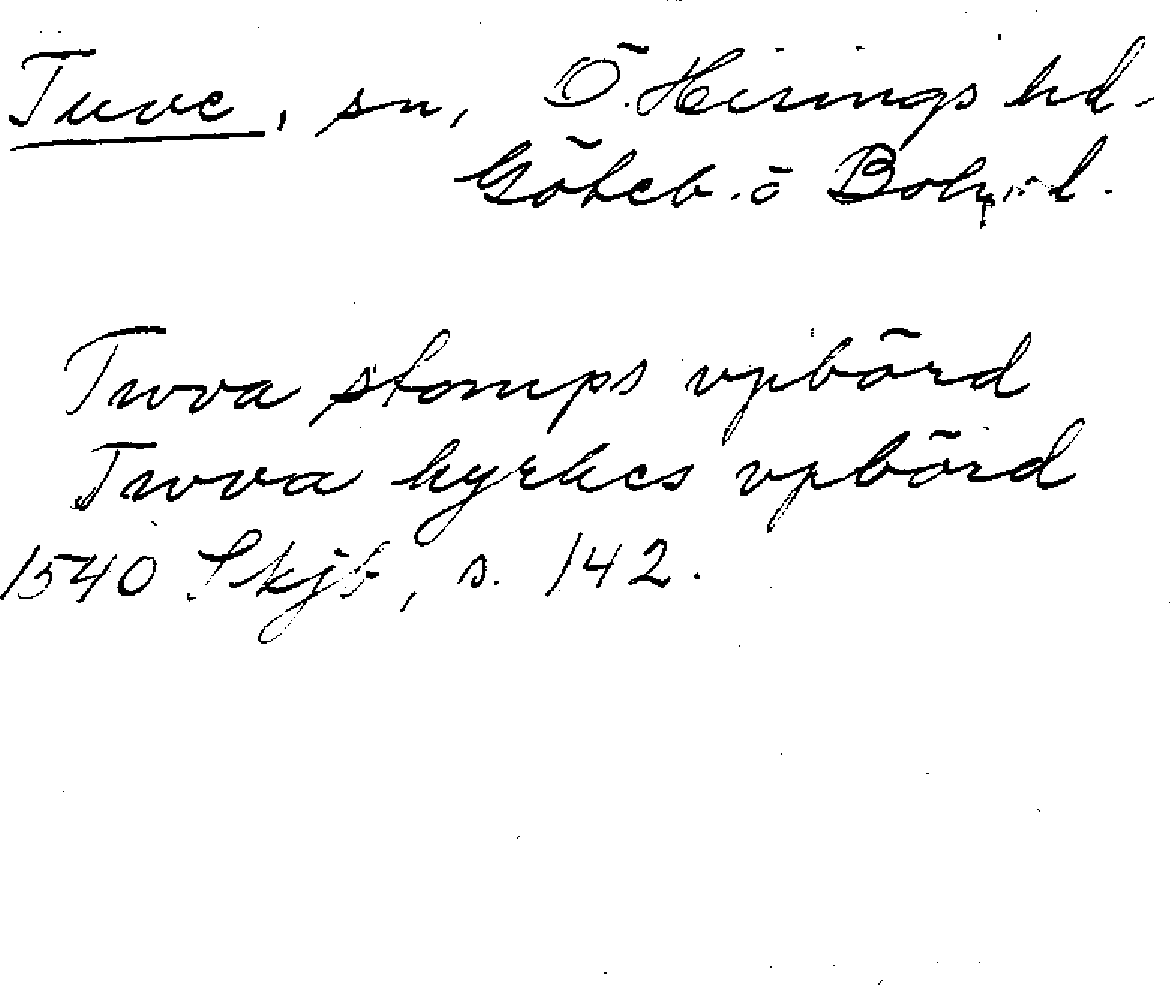 Tuve, sn, Ö. Hisings hd.
Göteb. o Boh. l.
Twva stomps vpbörd
Twva kyrkes vpbörd
1540 Skjb, s. 142.